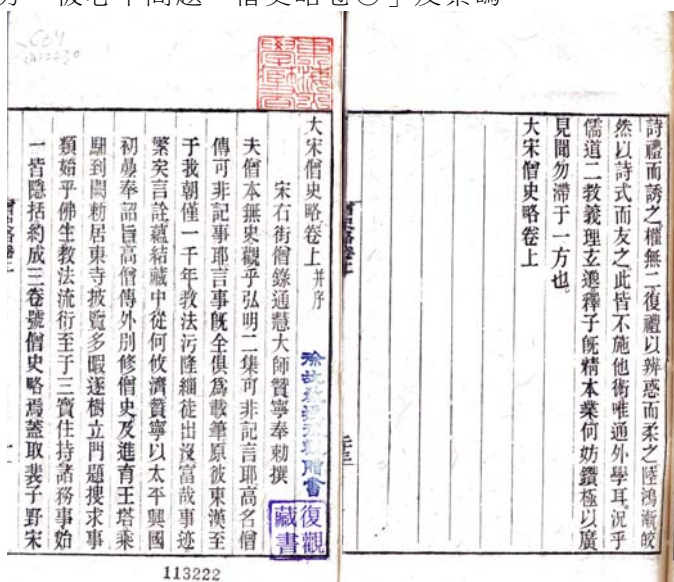 詩禮而誘之權無二復禮以辨惑而柔之陸鴻漸皎
然以詩式而友之此皆不施他術唯通外學耳況乎
儒道二教義理玄邈釋子既精本業何妨鑽極以廣
見聞勿滯于一方也
大宋僧史略卷上
大宋僧史略卷上并序
宋右街僧錄通慧大師贊寧奉勅撰
夫僧本無史觀乎弘明二集可非記言耶高名僧
傳可非記事耶言事既全俱為載筆原彼東漢至
于我朝僅一千年教法污隆緇徒出沒富哉事迹
繁矣言詮蘊結藏中從何攸濟贊寧以太平興國
初曡奉詔旨高僧傳外別修僧史及進育王塔乘
馹到闕勅居東寺披覽多暇遂樹立門題搜求事
類始乎佛生教法流衍至于三寶住持諸務事始
一皆隱括約成三卷號僧史略焉蓋取裴子野宋
徐故教授復觀贈書
復觀
藏書
113222